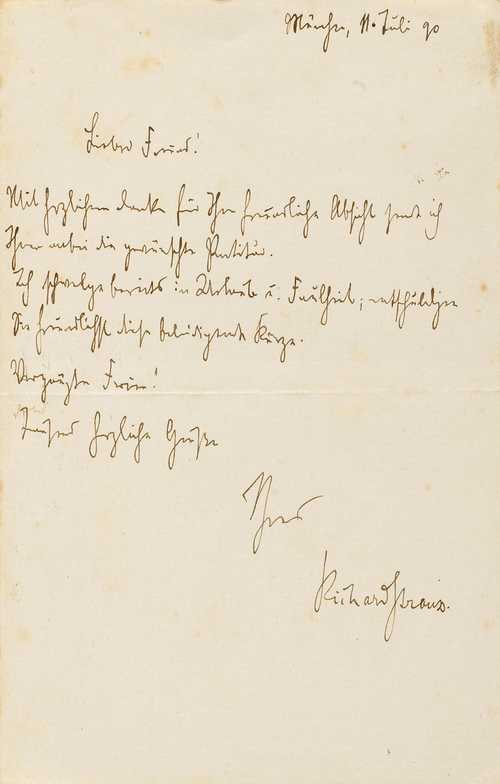 München, 11. Juli 90
Lieber Freund!
Mit herzlichem Danke für Ihre freundliche Absicht sende ich
Ihnen anbei die gewünschte Partitur.
Ich schwelge bereits in Urlaub u. Faulheit; entschuldigen
Sie freundlichst diese beleidigende Kürze.
Vergnügte Ferien!
Tausend herzliche Grüße
Ihres
Richard Strauss.